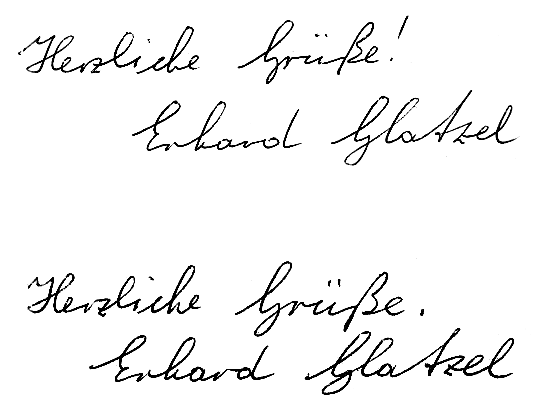 Herzliche Grüße!
Erhard Glatzel
Herzliche Grüße.
Erhard Glatzel